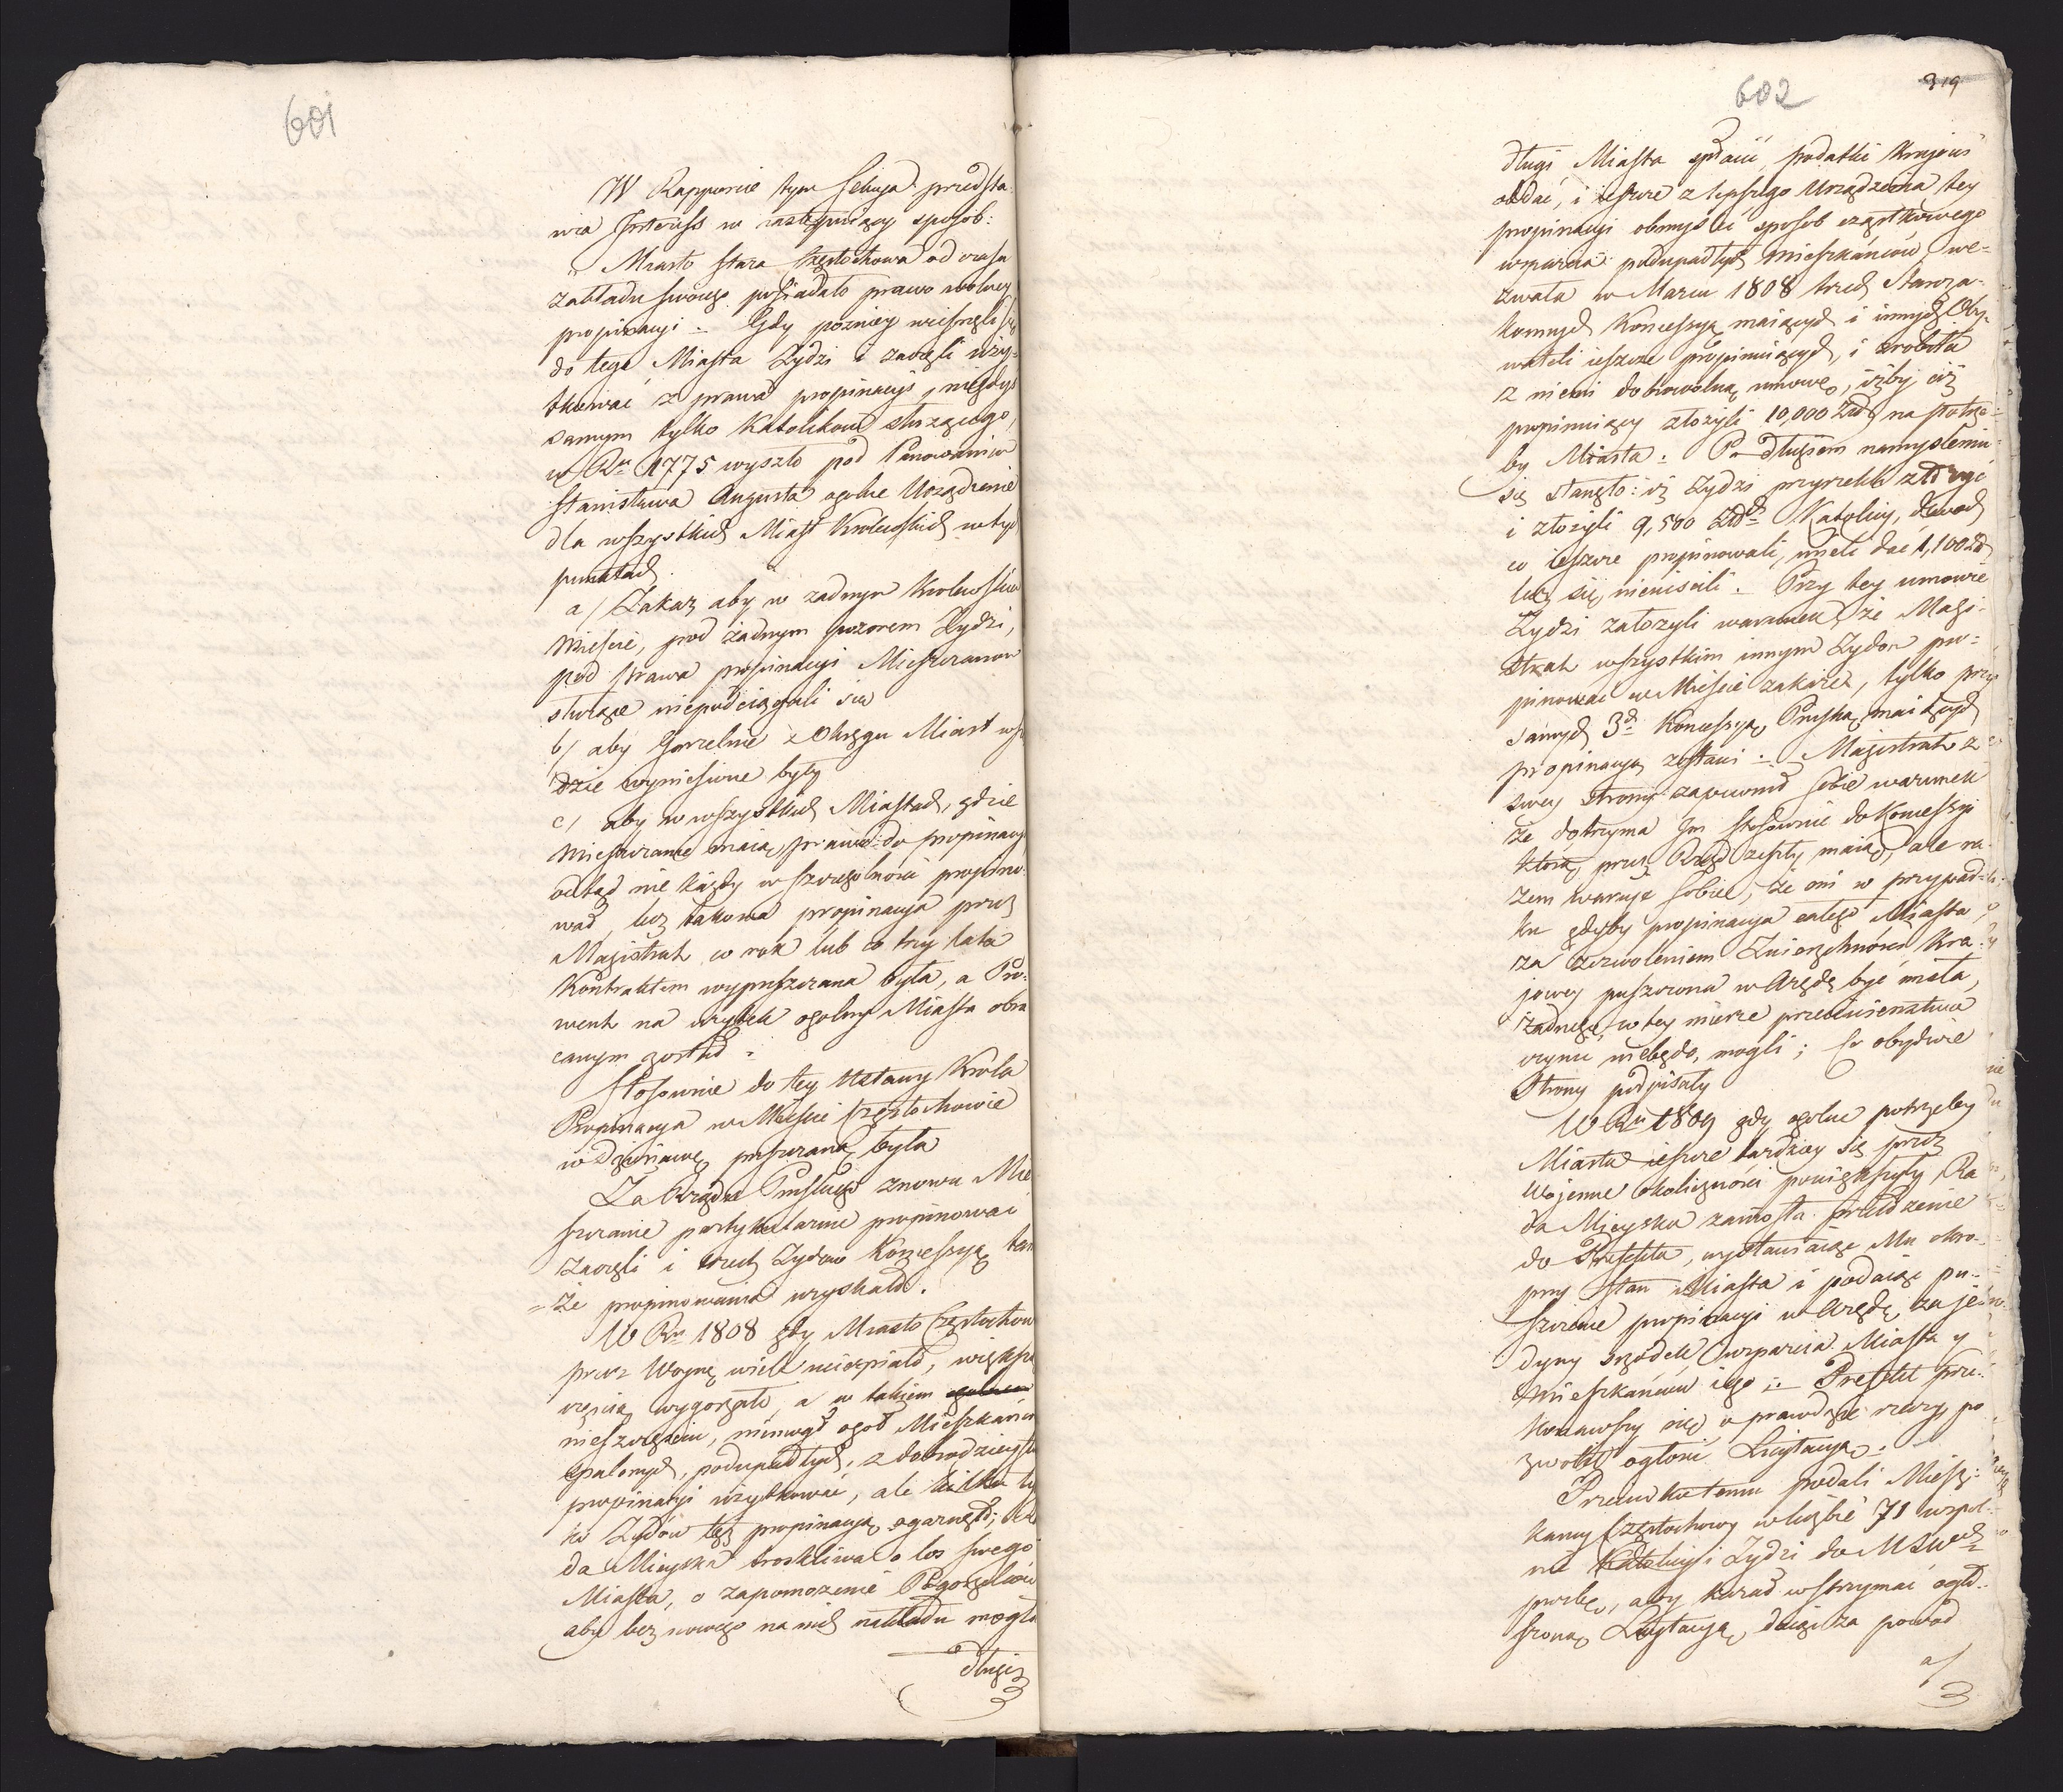 601
W Rapporcie tym Sekcya przedsta-
wia Interess w następuiący sposób:
"Miasto Stara Częstochowa od czasu
zakładu swoiego posiadało prawo wolney
propinacyi. Gdy pozniey wcisnęli się
do tego Miasta Żydzi i zaczęli uży-
tkować z prawa propinacyi, niegdyś
samym tylko Katolikom służącego,
w Ru 1775 wyszło pod Panowaniem
Stanisława Augusta ogolne Urządzenie
dla wszystkich Miast Krolewskich w tych
punktach.
a/ Zakaz aby w zadnym Krolewskim
Mieście, pod żadnym pozorem Żydzi,
pod prawa propinacyi Mieszczanom
służące niepodciągali się
b/ aby Gorzelnie z Okręgu Miast wszę
dzie wyniesione były
c/ aby w wszystkich Miastach, gdzie
Mieszczanie maią prawo do propinacyi
odtąd nie każdy w szczegolności propino-
wał, lecz takowa propinacya przez
Magistrat co rok lub co trzy lata
Kontraktem wypuszczana była, a Pro-
went na użytek ogolny Miasta obra
canym został.
Stosownie do tey Ustawy Krola
Propinacya w Mieście Częstochowie
w dzierżawę puszczaną była
Za Rządu Pruskiego znowu Mie
szczanie partykularnie propinować
zaczęli i trzech Żydow Koncessyą tak
-że propinowania uzyskało.
W Ru 1808 gdy Miasto Częstochowa
przez Woynę wiele ucierpiało, większą
częścią wygorzało, a w takiem
nieszczęściu, niemógł ogoł Mieszkańców
spalonych, podupadłych, z dobrodzieystw
propinacyi użytkować, ale kilku tyl
ko Żydów tęż propinacyą ogarnęło; Ra
da Mieyska troskliwa o los swego
Miasta, o zapomożenie Pogorzelców
aby bez nowego na nich nakładu mogła
długi
602
319
długi Miasta spłacić, podatki Kraiowe
oddać, i ieszcze z lepszego Urządzenia tey
propinacyi obmyślić sposob cząstkowego
wsparcia podupadłych Mieszkańców, we-
zwała w Marcu 1808 trzech Staroza-
konnych Koncessyą maiących i innych Oby-
wateli ieszcze propinuiących, i zrobiła
z niemi dobrowolną umowę, iżby ciż
propinuiący złożyli 10,000 Złł na potrze-
by Miasta. Po długiem namyśleniu
się stanęło: iż Żydzi przyrzekli złożyć
i złożyli 9,500 Złł Katolicy, dwoch
co ieszcze propinowali, mieli dać 1,100 Złł
lecz się nieuiścili. Przy tey umowie
Żydzi założyli warunek, że Magi-
strat wszystkim innym Żydom pro-
pinować w Mieście zakaże, tylko przy
samych 3ch Koncessyą Pruską maiących
propinacyą zostawi. Magistrat z
swey strony zapewnił sobie warunek
że dotrzyma Im stosownie do Koncessyi
ktorą przez Rząd zeszły maią, ale ra-
zem waruje sobie, że oni w przypad-
ku gdyby propinacya całego Miasta
za zezwoleniem Zwierzchności Kra-
jowey puszczona w Arędę być miała,
żadnego w tey mierze przeciwieństwa
czynić niebędą mogli; Co obydwie
Strony podpisały
W Ru 1809 gdy ogolne potrzeby
Miasta ieszcze bardziey się przez
Wojenne okoliczności powiększyły Ra
da Mieyska zaniosła przełożenie
do Prefekta, wystawiaiąc Mu okro-
pny Stan Miasta i podaiąc pu-
szczenie propinacyi w Arędę, za je-
dyny srzodek wsparcia Miasta y
Mieszkańców iego. Prefekt prze-
konawszy się o prawdzie rzeczy po
zwolił ogłosić Licytacyą.
Przeciwko temu podali Miesz-
kańcy Częstochowy w liczbie 71 wspol-
nie Katolicy i Żydzi do MSWch
prośbę, aby kazał wstrzymać ogło-
szoną Licytacyą, daiąc za powod
a/